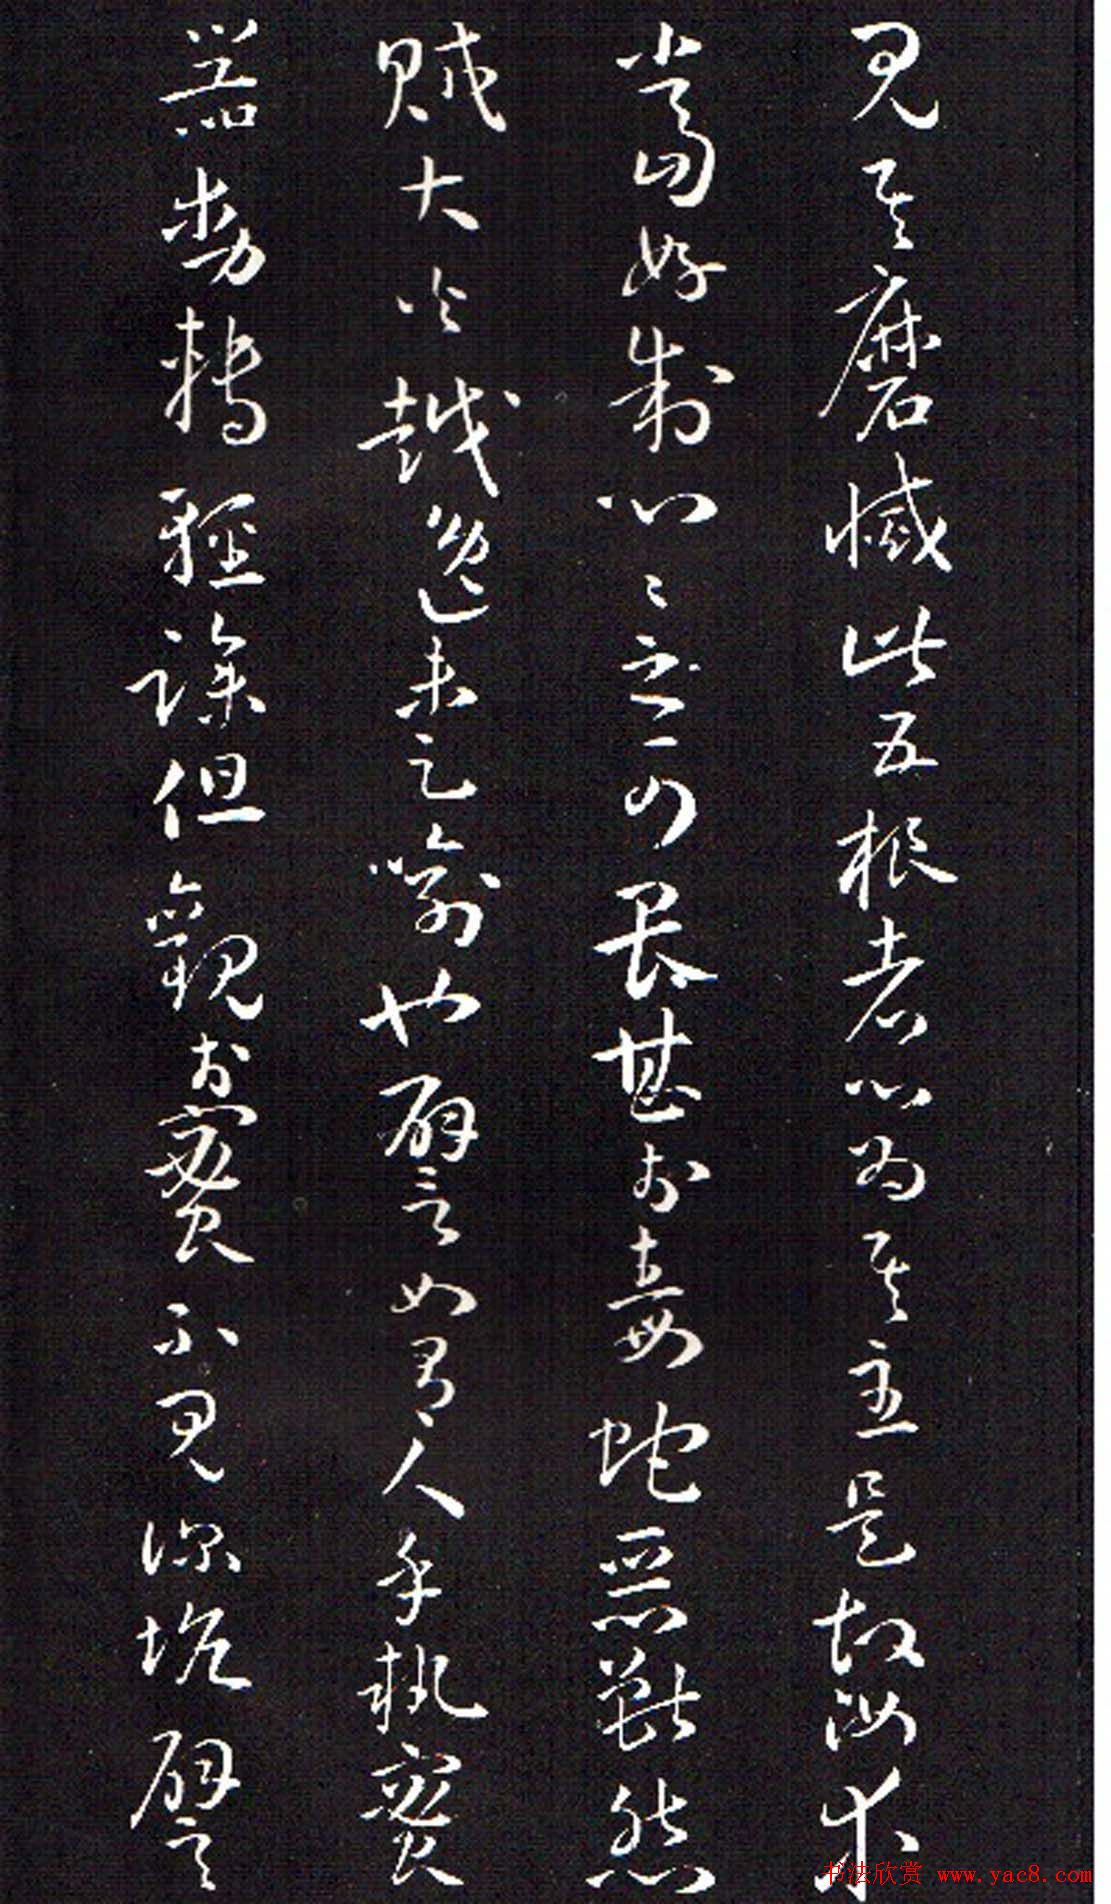 見其磨滅此五根者心為其主是故汝等
當好制心々之可畏甚於毒蛇惡獸怨
賊大火越逸未足喻也譬如有人手執蜜
器動轉輕躁但觀於蜜不見深坑譬
书法欣赏 www.yac8.com